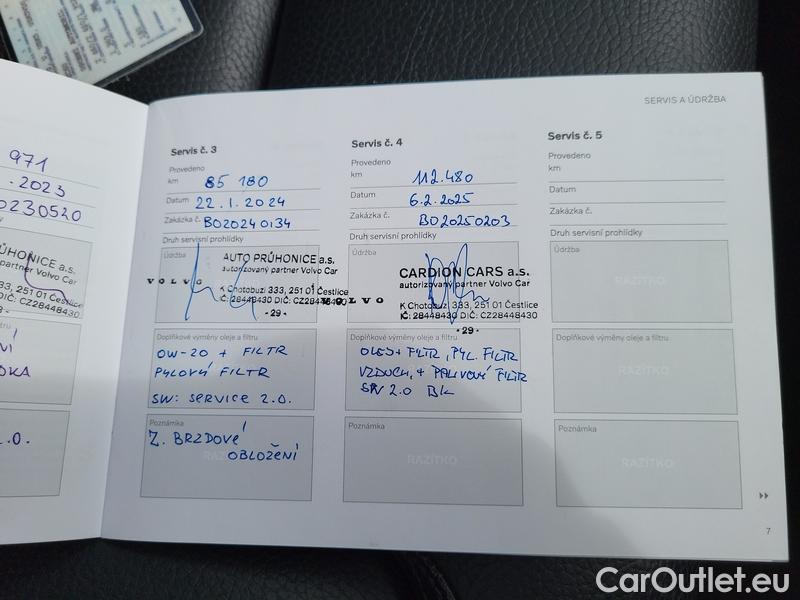 SERVIS A ÚDRŽBA
971
.2023
0230520
PRŮHONICE a.s.
partner Volvo Car
333, 251 01 Čestlice
DIČ: CZ28448430
Servis č. 3
Provedeno
km 85 180
Datum 22.1.2024
Zakázka č. BO20240134
Druh servisní prohlídky
Údržba
VOLVO
AUTO PRŮHONICE a.s.
autorizovaný partner Volvo Car
K Chotobuzi 333, 251 01 Čestlice
IČ: 28448430 DIČ: CZ28448430
- 29 -
Doplňkové výměny oleje a filtru
OW-20 + FILTR
PYLOVÝ FILTR
SW: SERVICE 2.0.
Poznámka
Z. BRZDOVÉ
OBLOŽENÍ
Servis č. 4
Provedeno
km 112.480
Datum 6.2.2025
Zakázka č. BO20250203
Druh servisní prohlídky
Údržba
VOLVO
CARDION CARS a.s.
autorizovaný partner Volvo Car
K Chotobuzi 333, 251 01 Čestlice
IČ: 28448430 DIČ: CZ28448430
- 29 -
Doplňkové výměny oleje a filtru
OLEJ + FILTR, PYL. FILTR
VZDUCH. + PALIVOVÝ FILTR
SW 2.0 BK
Poznámka
RAZÍTKO
Servis č. 5
Provedeno
km
Datum
Zakázka č.
Druh servisní prohlídky
Údržba
RAZÍTKO
Doplňkové výměny oleje a filtru
RAZÍTKO
Poznámka
RAZÍTKO
7
CarOutlet.eu